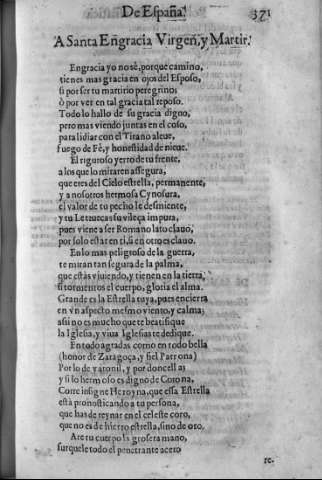 De España. 371
A Santa Engracia Virgen, y Martir.
Engracia yo no sè, porque camino,
tienes mas gracia en ojos del Esposo,
si por ser tu martirio peregrino;
ò por ver en tal gracia tal reposo.
Todo lo hallo de su gracia digno,
pero mas viendo juntas en el coso,
para lidiar con el Tirano aleue,
fuego de Fè, y honestidad de nieue.
El riguroso yerro de tu frente,
a los que lo miraren assegura,
que eres del Cielo estrella, permanente,
y a nosotros hermosa Cynosura,
el valor de tu pecho le desmiente,
y tu su vileça impura,
pues viene a ser Romano lato clauo,
por solo estar en ti, si en otro es clauo.
En lo mas peligroso de la guerra,
te miran tan segura de la palma,
que estàs viuiendo, y tienen en la tierra,
si tormentos el cuerpo, gloria el alma.
Grande es la Estrella tuya, pues encierra
en vn aspecto mesmo viento, y calma;
assi no es mucho que te beatifique
la Iglesia, y viua Iglesias te dedique.
En todo agradas como en todo bella
(honor de Zaragoça, y fiel Patrona)
Por lo de varonil, y por doncella;
y si lo hermoso es digno de Corona,
Corre insigne Heroyna, que essa Estrella
està pronosticando a tu persona,
que has de reynar en el celeste coro,
que no es de hierro estrella, sino de oro.
Are tu cuerpo la grosera mano,
surquele todo el penetrante acero
re-